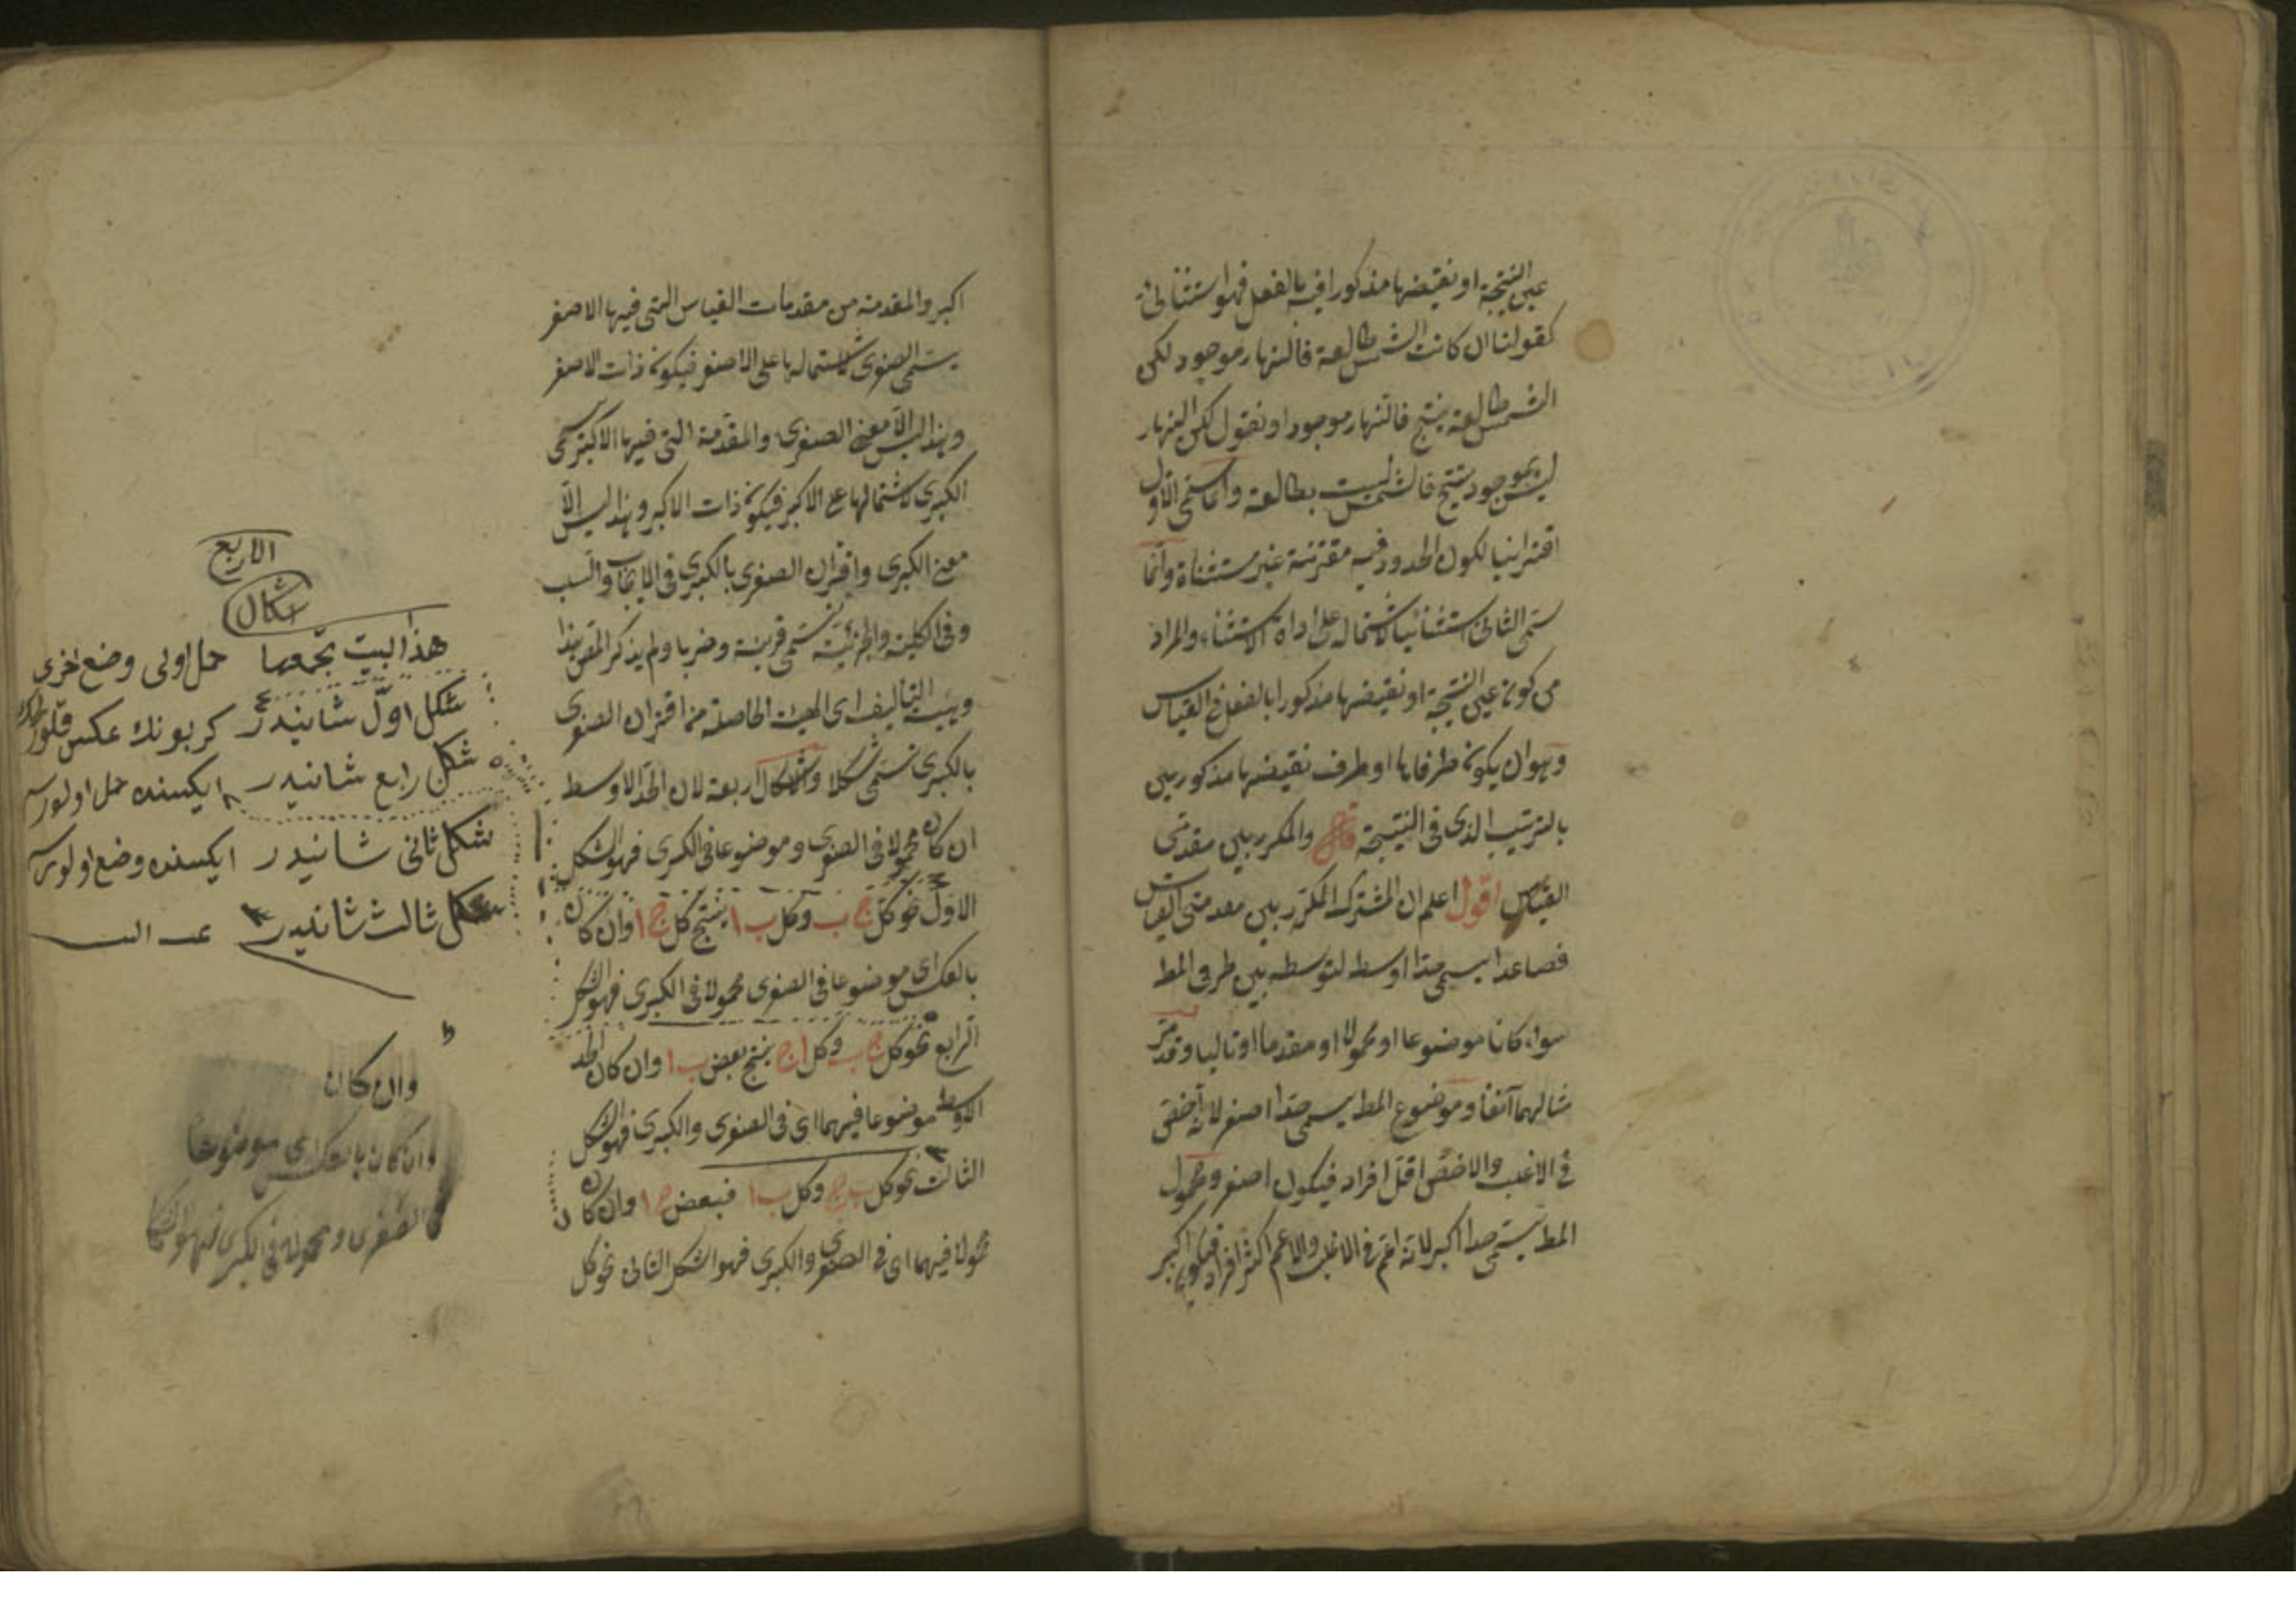 عين النتيجة او نقيضها مذكورا فيه بالفعل فهو استثنائى
كقولنا ان كانت الشمس طالعة فالنهار موجود لكن
الشمس طالعة ينتج فالنهار موجود او نقول لكن النهار
ليس بموجود ينتج فالشمس ليست بطالعة وانما سمى الاول
اقترانيا لكون الحدود فيه مقترنة غير مستثناة وانما
سمى الثانى استثنائيا لاشتماله على اداة الاستثناء والمراد
من كون عين النتيجة او نقيضها مذكورا بالفعل فى القياس
وهو ان يكون طرفاها او طرف نقيضها مذكورين
بالترتيب الذى فى النتيجة والمكرر بين مقدمتى
القياس اقول اعلم ان المشترك المكرر بين مقدمتى القياس
فصاعدا يسمى حدا اوسط لتوسطه بين طرفى المط
سواء كانا موضوعا او محمولا او مقدما او تاليا وقد مر
مثالهما آنفا وموضوع المط يسمى حدا اصغر لانه اخص
فى الاغلب والاخص اقل افراد فيكون اصغر ومحمول
المط يسمى حدا اكبر لانه اعم فى الاغلب والاعم اكثر افراد فيكون اكبر
اكبر والمقدمة من مقدمات القياس التى فيها الاصغر
يسمى الصغرى لاشتمالها على الاصغر فيكون ذات الاصغر
وهذا ليس الا معنى الصغرى والمقدمة التى فيها الاكبر يسمى
الكبرى لاشتمالها ع الاكبر فيكون ذات الاكبر وهذا ليس الا
معنى الكبرى واقتران الصغرى بالكبرى فى الايجاب والسلب
وفى الكلية والجزئية تسمى قرينة وضربا ولم يذكر المص هذا
وهيئة التأليف اى الهيئة الحاصلة من اقتران الصغرى
بالكبرى تسمى شكلا والاشكال اربعة لان الحد الاوسط
ان كان محمولا فى الصغرى وموضوعا فى الكبرى فهو الشكل
الاول نحو كل ج ب وكل ب ا ينتج كل ج ا وان كان
بالعكس اى موضوعا فى الصغرى محمولا فى الكبرى فهو الشكل
الرابع نحو كل ج ب وكل ا ج ينتج بعض ب ا وان كان الحد
الاوسط موضوعا فيهما اى فى الصغرى والكبرى فهو الشكل
الثالث نحو كل ب ج وكل ب ا فبعض ج ا وان كان
محمولا فيهما اى فى الصغرى والكبرى فهو الشكل الثانى نحو كل
الاربع
اشكال
هذا البيت تجمعها حمل اولى وضع اخرى
شكل اول شانيدر كر بونك عكس
شكل رابع شانيدر ايكسنده حمل اولورسه
شكل ثانى شانيدر ايكسنده وضع اولورسه
شكل ثالث شانيدر
وان كان
وان كان بالعكس اى موضوعا
فى الصغرى ومحمولا فى الكبرى فهو الشكل